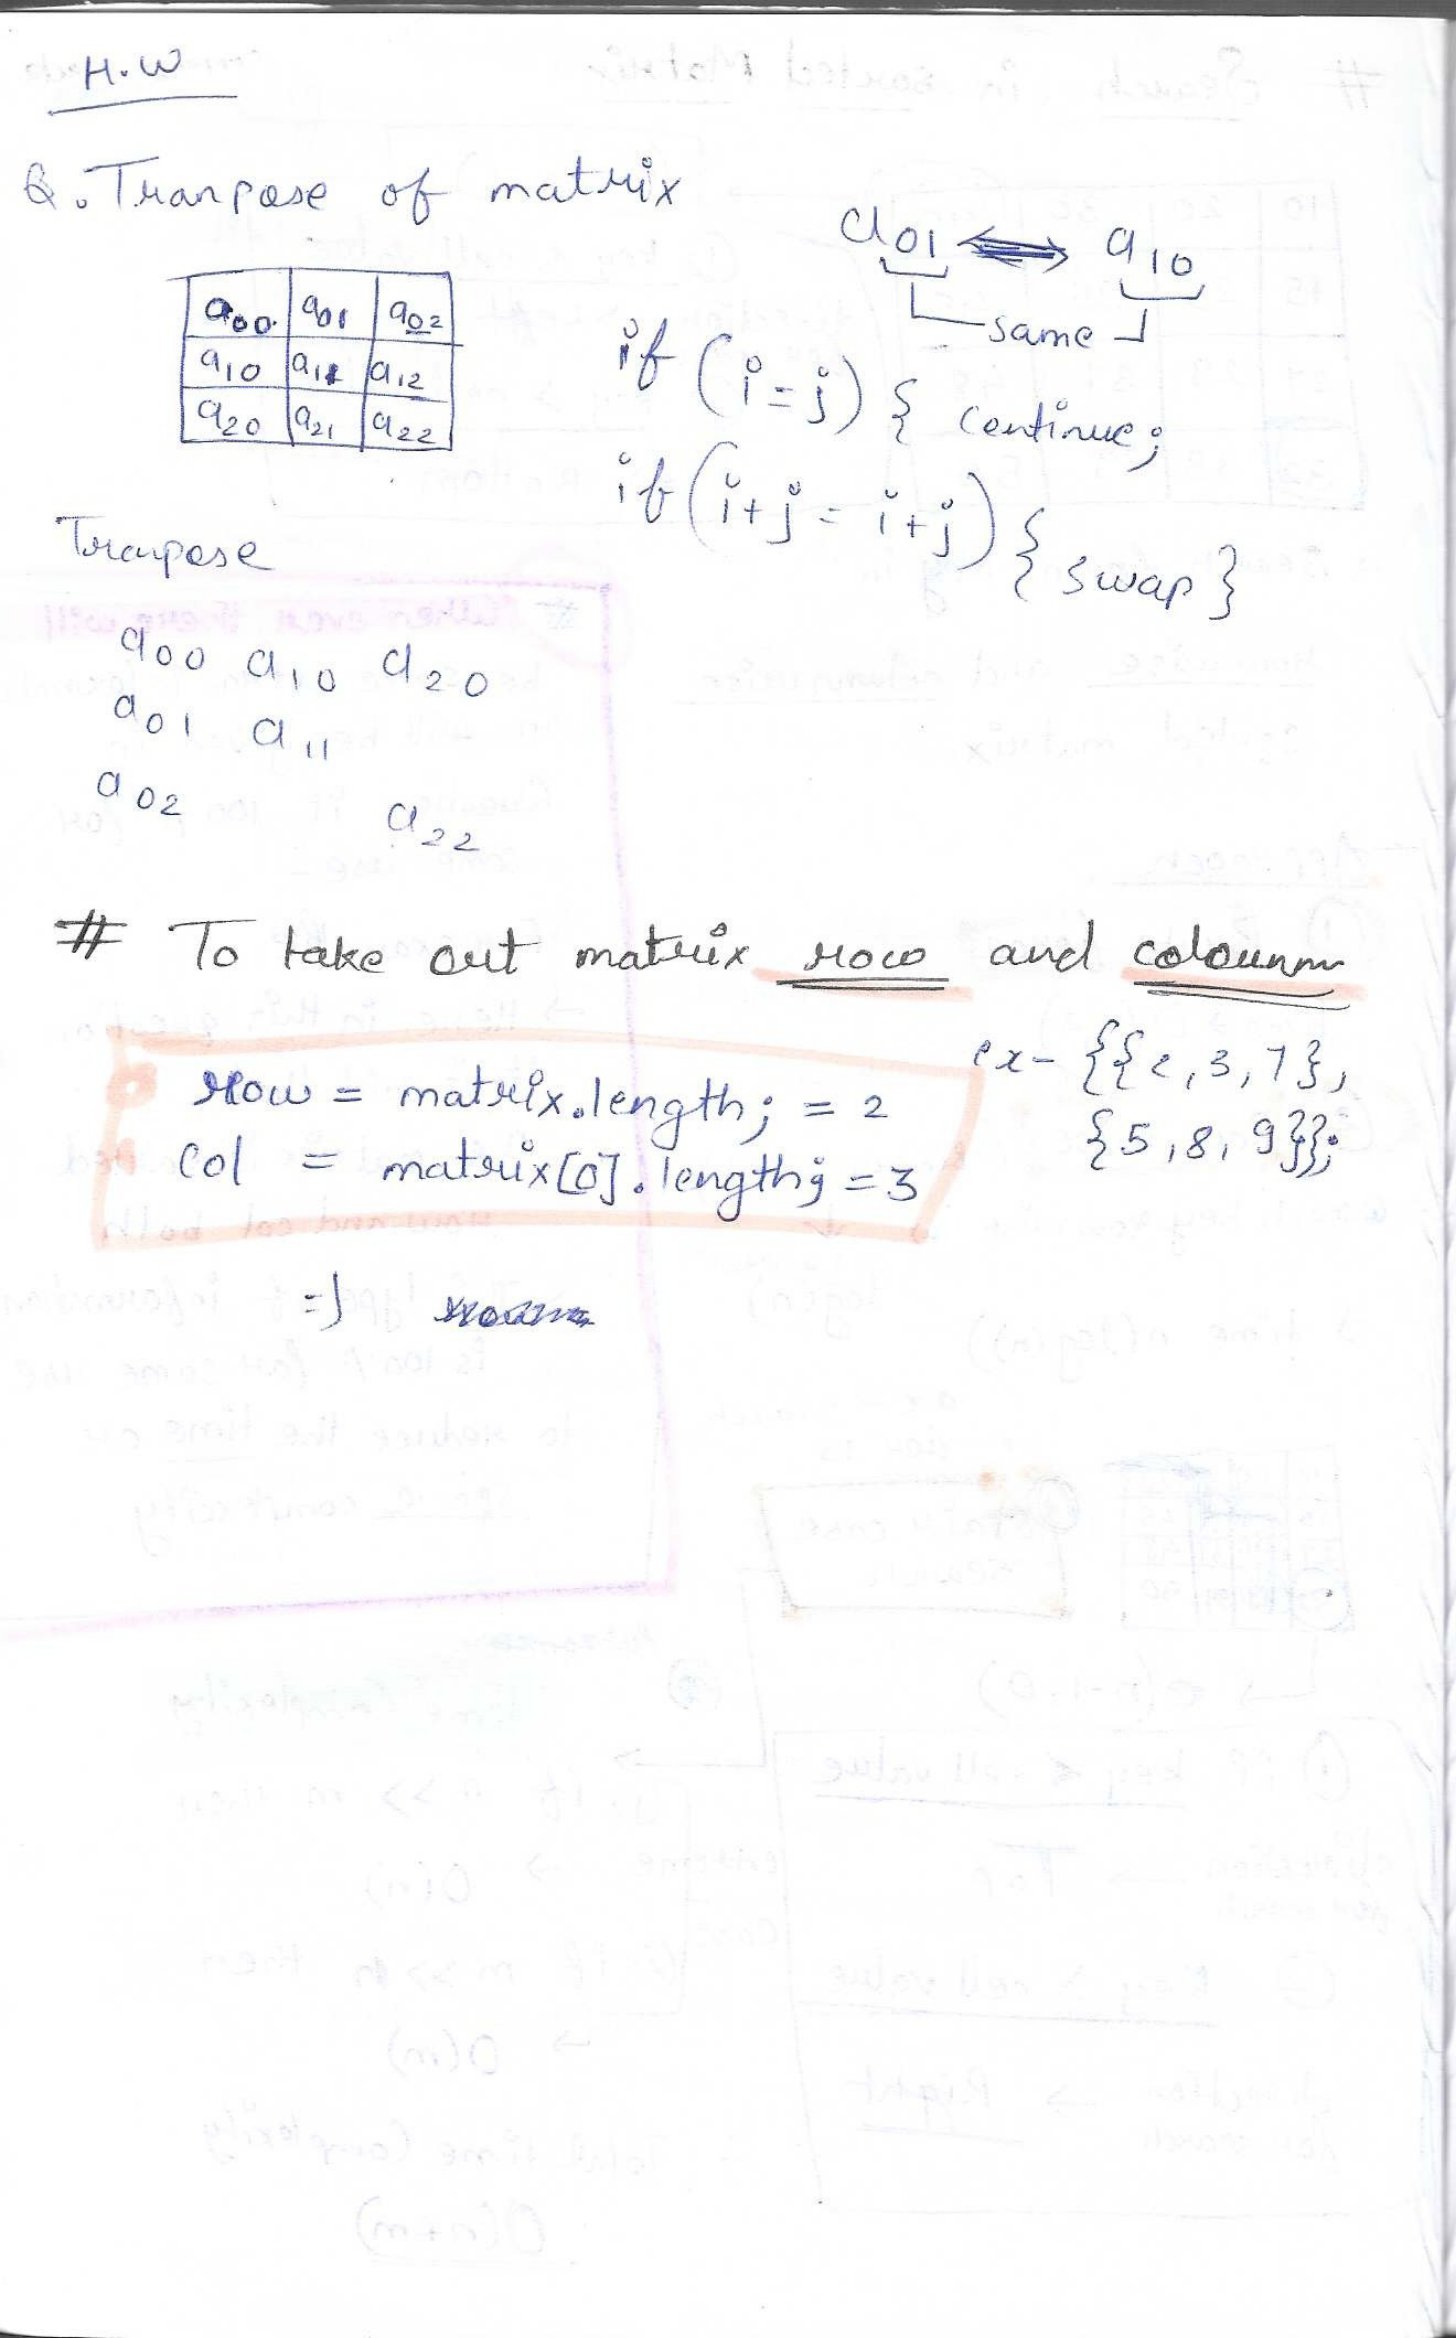 H.W
Q. Tranpose of matrix
a00 a01 a02
a10 a11 a12
a20 a21 a22
a01 ⟺ a10
same
if (i=j) { continue;
if (i+j = i+j) { swap }
Tranpose
a00 a10 a20
a01 a11
a02 a22
# To take out matrix row and colounm
row = matrix.length; = 2
col = matrix[0].length; = 3
ex- {{2,3,7},
{5,8,9}};
=)